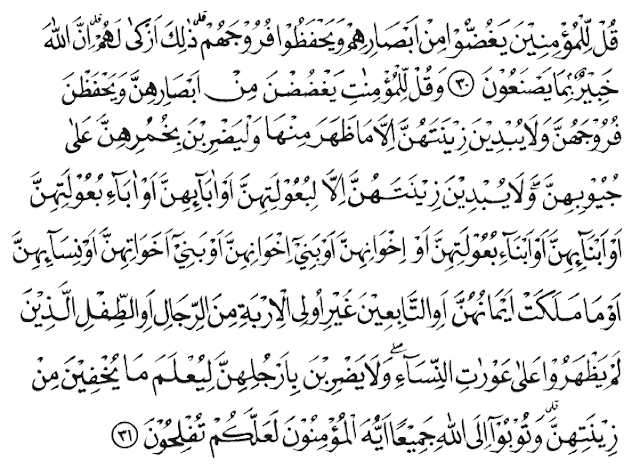 قُلْ لِلْمُؤْمِنِينَ يَغُضُّوا مِنْ اَبْصَارِهِمْ وَيَحْفَظُوا فُرُوجَهُمْۜ ذٰلِكَ اَزْكٰى لَهُمْۜ اِنَّ اللّٰهَ
خَبِيرٌ بِمَا يَصْنَعُونَ ﴿٣٠﴾ وَقُلْ لِلْمُؤْمِنَاتِ يَغْضُضْنَ مِنْ اَبْصَارِهِنَّ وَيَحْفَظْنَ
فُرُوجَهُنَّ وَلَا يُبْدِينَ زِينَتَهُنَّ اِلَّا مَا ظَهَرَ مِنْهَا وَلْيَضْرِبْنَ بِخُمُرِهِنَّ عَلٰى
جُيُوبِهِنَّۖ وَلَا يُبْدِينَ زِينَتَهُنَّ اِلَّا لِبُعُولَتِهِنَّ اَوْ اٰبَٓائِهِنَّ اَوْ اٰبَٓاءِ بُعُولَتِهِنَّ
اَوْ اَبْنَٓائِهِنَّ اَوْ اَبْنَٓاءِ بُعُولَتِهِنَّ اَوْ اِخْوَانِهِنَّ اَوْ بَنِٓي اِخْوَانِهِنَّ اَوْ بَنِٓي اَخَوَاتِهِنَّ اَوْ نِسَٓائِهِنَّ
اَوْ مَا مَلَكَتْ اَيْمَانُهُنَّ اَوِ التَّابِعِينَ غَيْرِ اُولِي الْاِرْبَةِ مِنَ الرِّجَالِ اَوِ الطِّفْلِ الَّذِينَ
لَمْ يَظْهَرُوا عَلٰى عَوْرَاتِ النِّسَٓاءِۖ وَلَا يَضْرِبْنَ بِاَرْجُلِهِنَّ لِيُعْلَمَ مَا يُخْفِينَ مِنْ
زِينَتِهِنَّۜ وَتُوبُٓوا اِلَى اللّٰهِ جَمِيعًا اَيُّهَ الْمُؤْمِنُونَ لَعَلَّكُمْ تُفْلِحُونَ ﴿٣١﴾